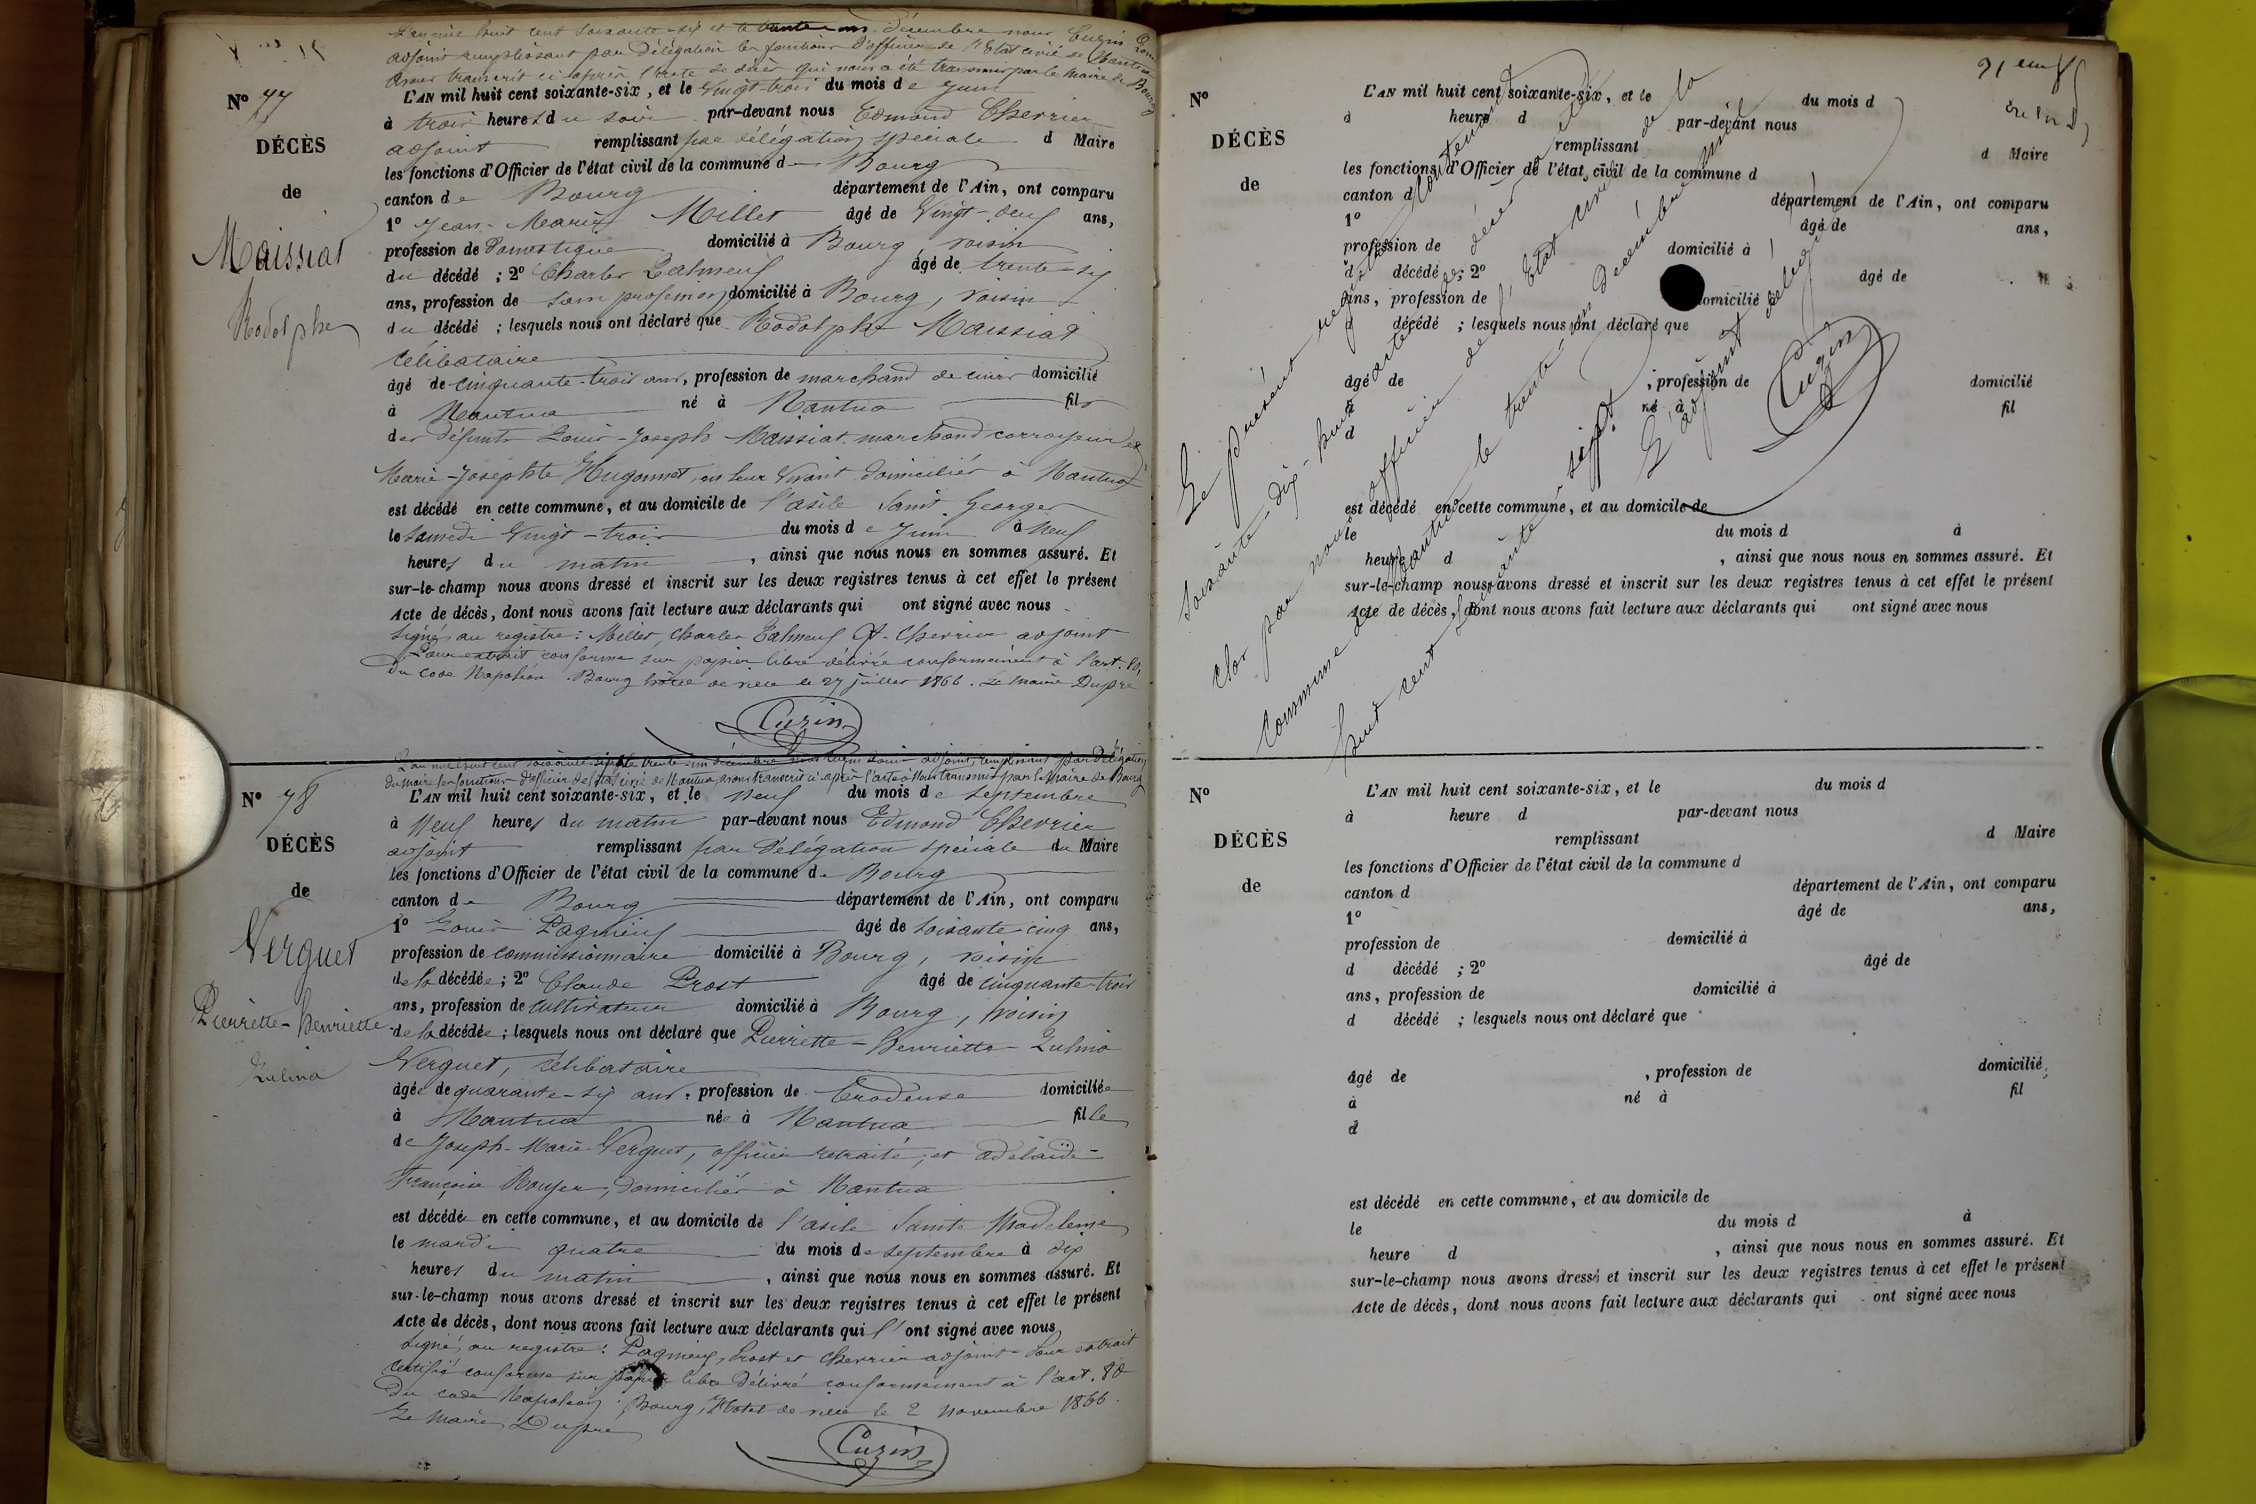 L'an mil huit cent soixante-six et le trente-un décembre nous Cuzin Louis
adjoint remplissant par délégation les fonctions d'officier de l'Etat civil de Nantua
avons transcrit ci après l'acte de décès qui nous a été transmis par le Maire de Bourg
N° 77
L'AN mil huit cent soixante-six, et le vingt-trois du mois de Juin
à trois heures du soir par-devant nous Edmond Chevrier
DÉCÈS
adjoint remplissant par délégation spéciale d Maire
les fonctions d'Officier de l'état civil de la commune de Bourg
de
canton de Bourg département de l'Ain, ont comparu
1° Jean-Marie Millet âgé de Vingt-neuf ans,
Maissiat
profession de Domestique domicilié à Bourg, voisin
du décédé ; 2° Charles âgé de trente-six
ans, profession de sans profession, domicilié à Bourg, voisin
Rodolphe
du décédé ; lesquels nous ont déclaré que Rodolphe Maissiat
célibataire
âgé de cinquante-trois ans, profession de marchand de cuirs domicilié
à Nantua né à Nantua fils
des défunts Louis-Joseph Maissiat marchand corroyeur et
Marie-Josephte Hugonnet, en leur vivant domiciliés à Nantua
est décédé en cette commune, et au domicile de l'asile Saint Georges
le Samedi Vingt-trois du mois de Juin à Neuf
heures du matin, ainsi que nous nous en sommes assuré. Et
sur-le-champ nous avons dressé et inscrit sur les deux registres tenus à cet effet le présent
Acte de décès, dont nous avons fait lecture aux déclarants qui ont signé avec nous
signés au registre : Millet, Charles et Chevrier adjoint
Pour extrait conforme sur papier libre délivré conformément à l'art. 80
du Code Napoléon. Bourg hôtel de ville le 27 juillet 1866. Le Maire Dupré
Cuzin
L'an mil huit cent soixante-six le trente-un décembre nous Cuzin Louis adjoint, remplissant par délégation
du maire les fonctions d'officier de l'état civil de Nantua, avons transcrit ci-après l'acte à nous transmis par le Maire de Bourg
N° 78
L'AN mil huit cent soixante-six, et le neuf du mois de septembre
à Neuf heures du matin par-devant nous Edmond Chevrier
DÉCÈS
adjoint remplissant par délégation spéciale du Maire
les fonctions d'Officier de l'état civil de la commune de Bourg
de
canton de Bourg département de l'Ain, ont comparu
1° Louis Pagneux âgé de soixante-cinq ans,
Verguet
profession de commissionnaire domicilié à Bourg, voisin
de la décédée ; 2° Claude Prost âgé de cinquante-trois
ans, profession de cultivateur domicilié à Bourg, voisin
Pierrette-henriette
de la décédée ; lesquels nous ont déclaré que Pierrette-henriette-Zulma
Zulma
Verguet, célibataire
âgée de quarante-six ans, profession de Brodeuse domiciliée
à Nantua née à Nantua fille
de Joseph-Marie Verguet, officier retraité, et adélaïde-
françoise Royer, domiciliés à Nantua
est décédée en cette commune, et au domicile de l'asile Sainte Madeleine
le mardi quatre du mois de septembre à dix
heures du matin, ainsi que nous nous en sommes assuré. Et
sur-le-champ nous avons dressé et inscrit sur les deux registres tenus à cet effet le présent
Acte de décès, dont nous avons fait lecture aux déclarants qui l'ont signé avec nous
signé au registre : Pagneux, Prost et Chevrier adjoint Pour extrait
certifié conforme sur papier libre délivré conformément à l'art. 80
du code Napoléon. Bourg, Hotel de ville le 2 novembre 1866.
Le Maire, Dupré
Cuzin
N°
L'AN mil huit cent soixante-six, et le du mois d
à heure d par-devant nous
DÉCÈS
remplissant d Maire
les fonctions d'Officier de l'état civil de la commune d
de
canton d département de l'Ain, ont comparu
1° âgé de ans,
profession de domicilié à
d décédé ; 2° âgé de
ans, profession de domicilié
d décédé ; lesquels nous ont déclaré que
âgé de , profession de domicilié
à né à fil
d
est décédé en cette commune, et au domicile de
le du mois d à
heure d , ainsi que nous nous en sommes assuré. Et
sur-le-champ nous avons dressé et inscrit sur les deux registres tenus à cet effet le présent
Acte de décès, dont nous avons fait lecture aux déclarants qui ont signé avec nous
Le présent registre contenant
soixante-dix-huit actes de décès a été
clos par nous officier de l'Etat civil de la
commune de Nantua le trente-un Décembre mil
huit cent soixante-six.
L'adjoint délégué
Cuzin
N°
L'AN mil huit cent soixante-six, et le du mois d
à heure d par-devant nous
DÉCÈS
remplissant d Maire
les fonctions d'Officier de l'état civil de la commune d
de
canton d département de l'Ain, ont comparu
1° âgé de ans,
profession de domicilié à
d décédé ; 2° âgé de
ans, profession de domicilié à
d décédé ; lesquels nous ont déclaré que
âgé de , profession de domicilié
à né à fil
d
est décédé en cette commune, et au domicile de
le du mois d à
heure d , ainsi que nous nous en sommes assuré. Et
sur-le-champ nous avons dressé et inscrit sur les deux registres tenus à cet effet le présent
Acte de décès, dont nous avons fait lecture aux déclarants qui ont signé avec nous